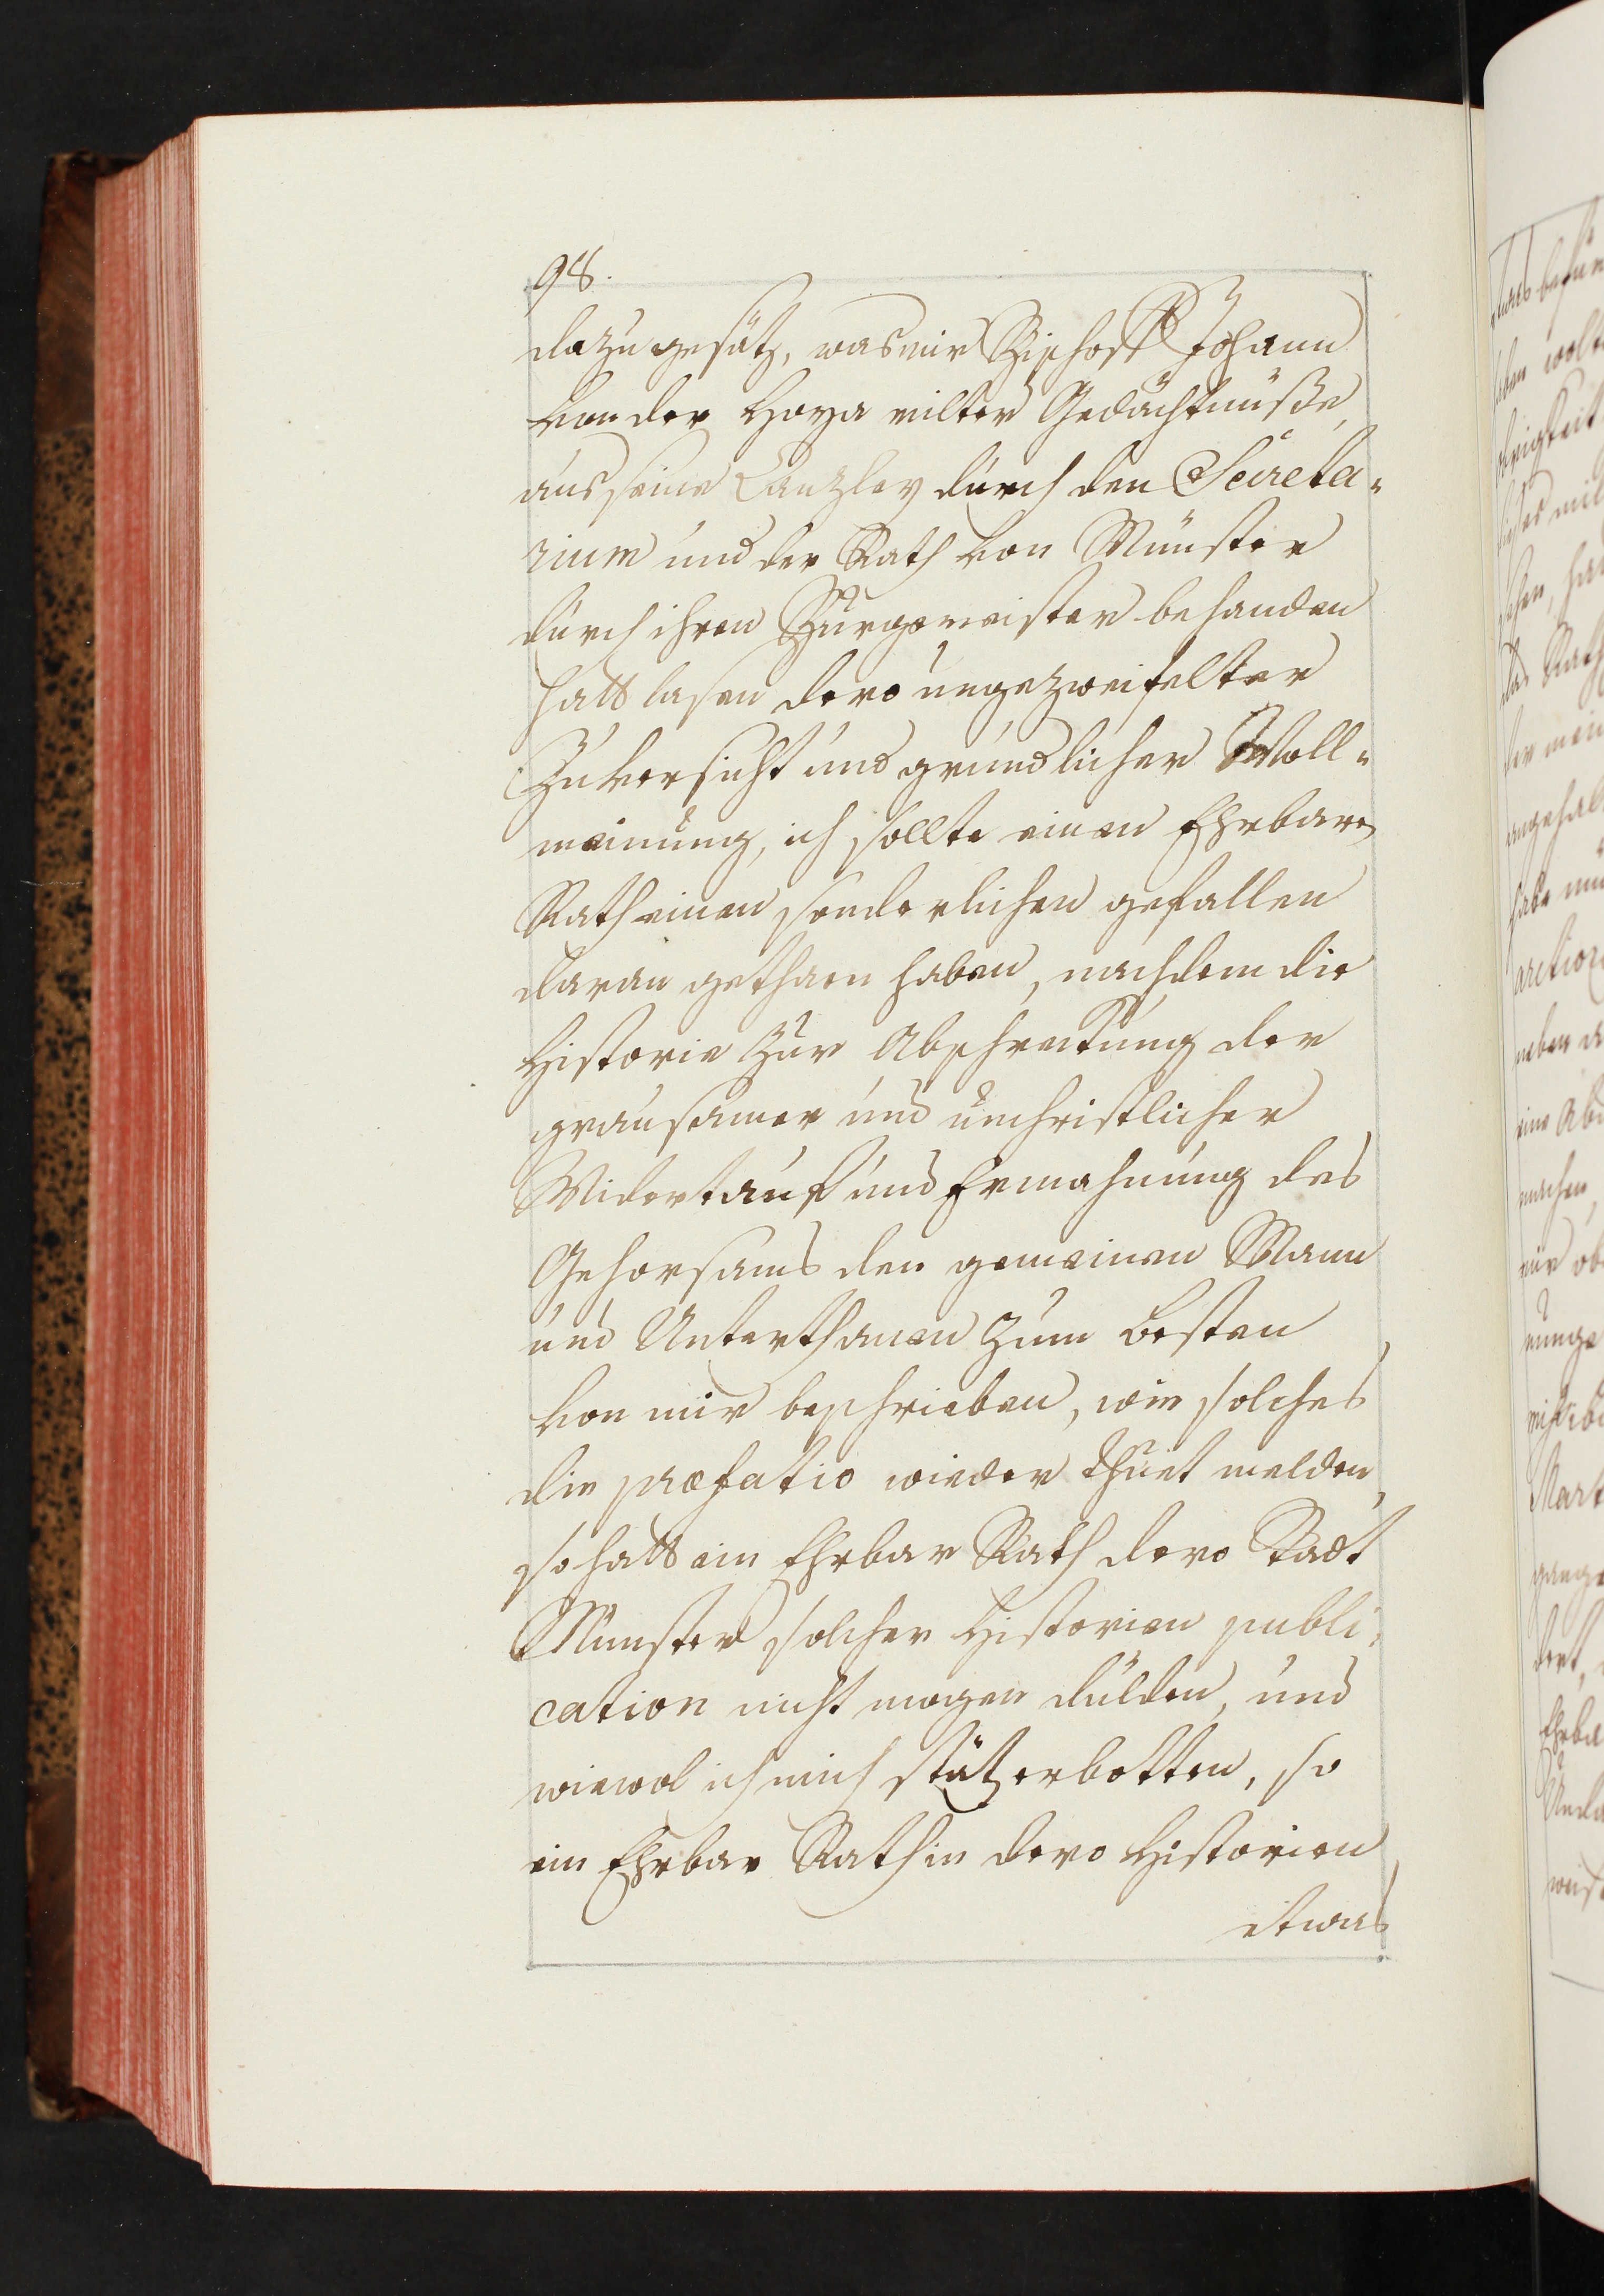 98.
dazu gesätz, was mir Bischoff Johann
von der Hoya milter Gedächtnüße,
aus seine Canzley durch den Secreta-
rium und der Rath von Münster
durch ihren Bürgemeister behanden
hatt lasen dero ungezweifelter
Zuversicht und gründlicher Woll-
meinung, ich sollte einen Ehrbarn
Rath einen sonderlichen gefallen
daran gethaen haben, nachdem die
Historie zur Abschreckung der
grausamer und unchristlicher
Widertauf und Ermahnung des
Gehorsams den gemeinen Mann
und Unterthanen zum besten
von mir beschrieben, wie solches
die præfatio wieder thuet melden,
so hatt ein Ehrbar Rath dero Stadt
Münster solcher Historien publi-
cation nicht mogen dulden, und
wiewol ich mich stätz erbotten, so
ein Ehrbar Rath in dero Historien
etwas